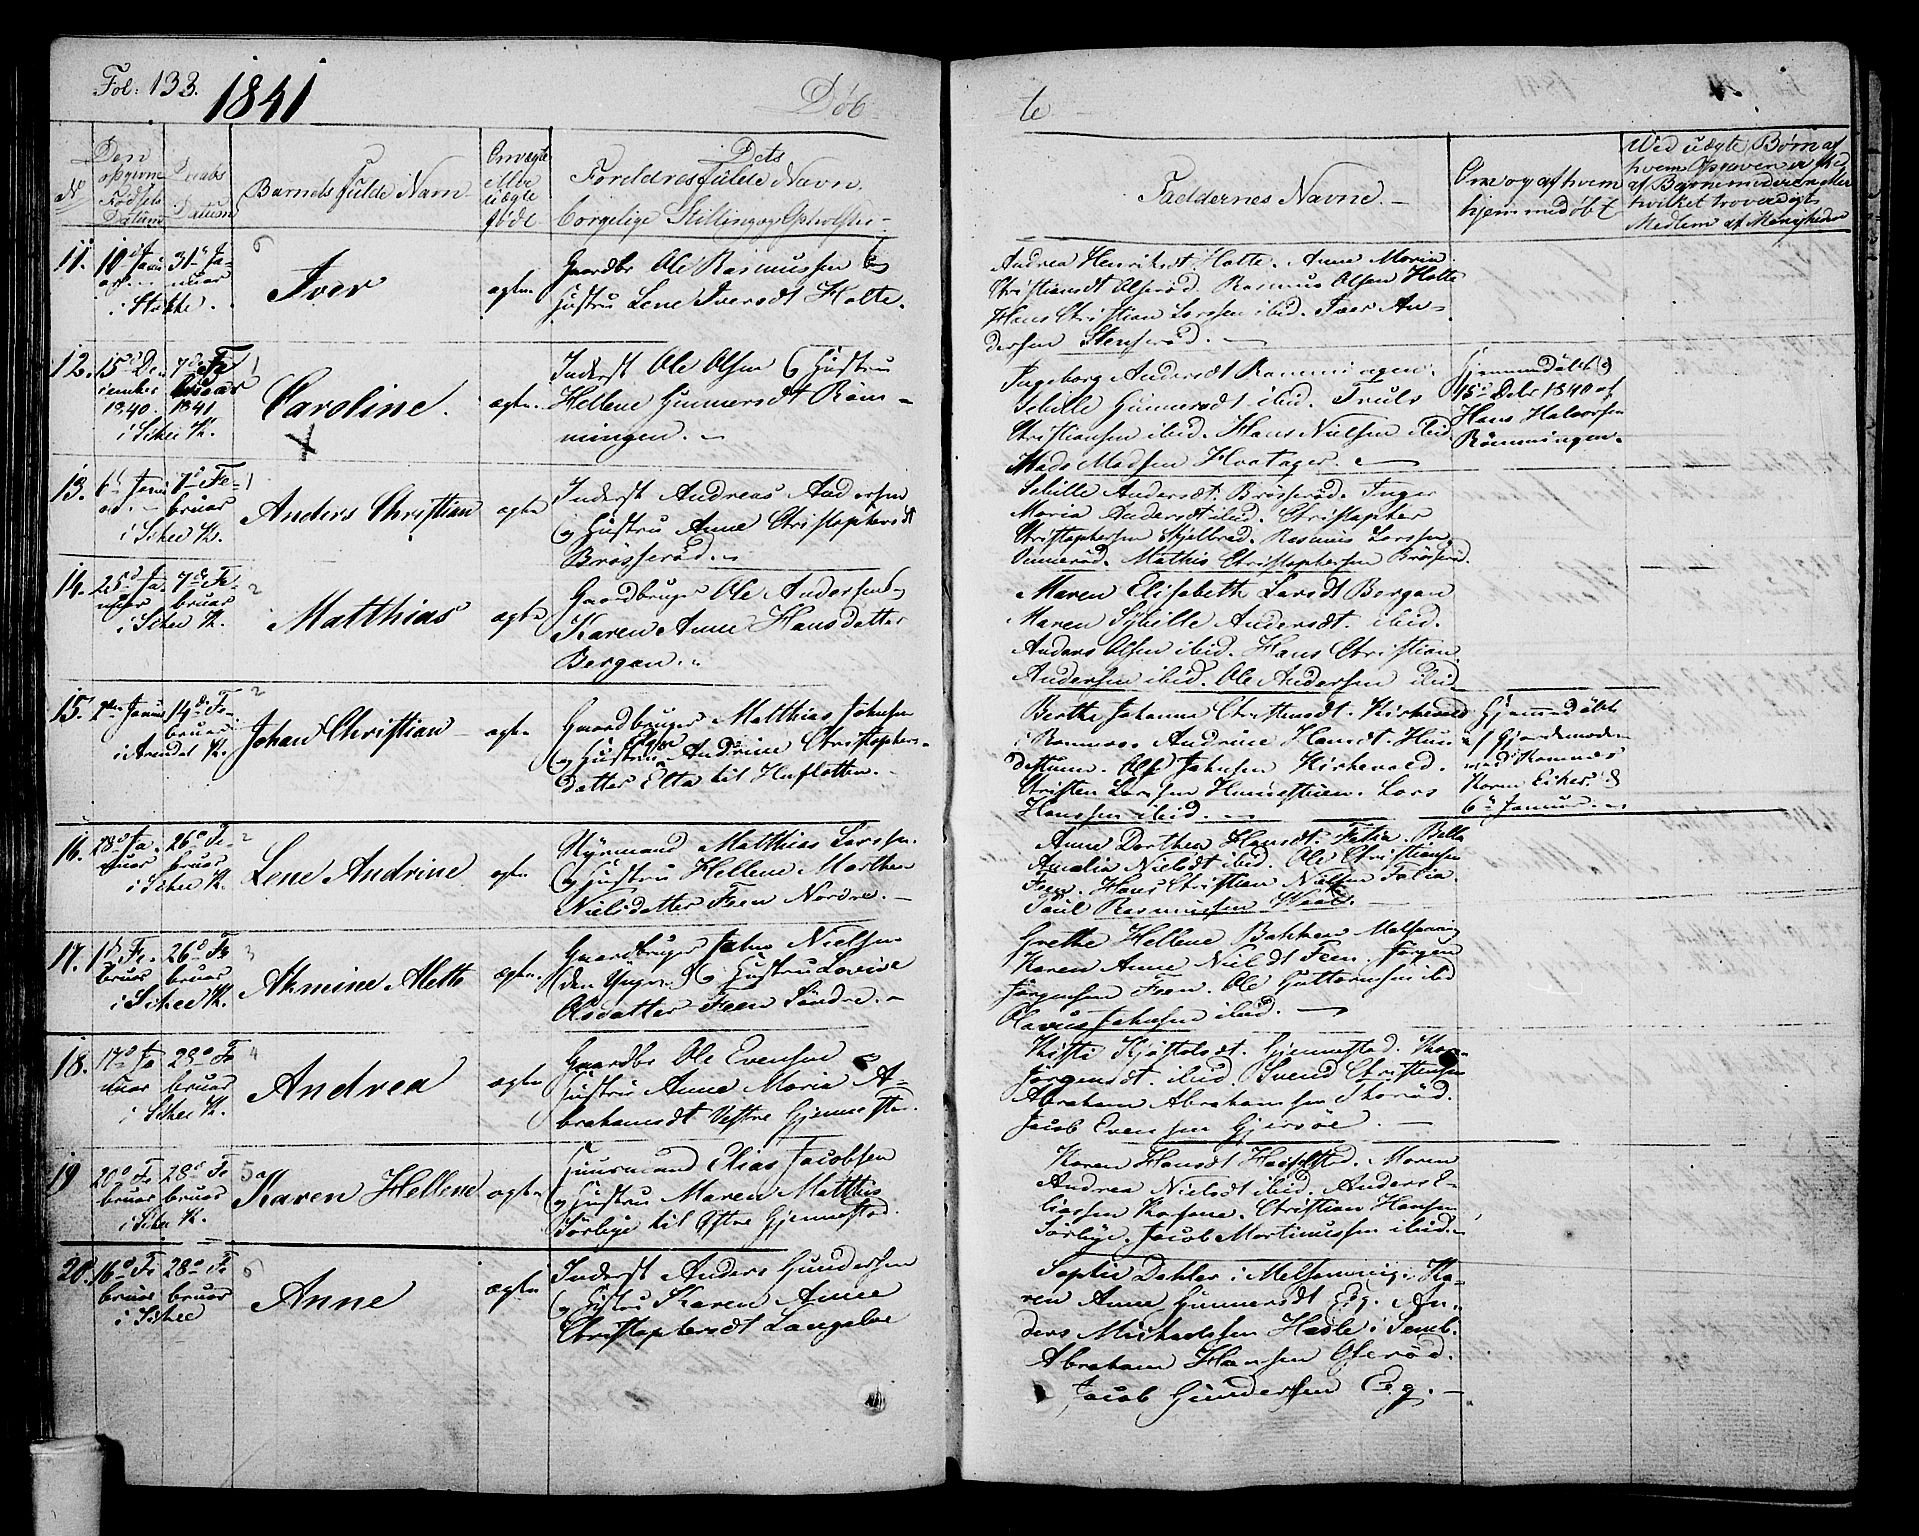 Fol: 133.
1841
Døb
te
No
Den opgivne Fødsels Datum
Daabs Datum
Barnets fulde Navn
Om ægte eller uægte født
Dets Forældres fulde Navn,
borgelige Stilling og Opholdst:
Faddernes Navne. -
Om og af hvem hjemmedøbt
Ved uægte Børn af
hvem Opgaven er skeet
af Barnemoderen eller
hvilket troværdigt
Medlem af Menigheden
11.
10d Janu
ar
31te Ja-
nuar
i Stokke.
Iver
ægte
Gaardbr Ole Rasmussen &
Hustru Lene Iversdt Holte.
Andrea Henriksdt Holte. Anne Maria
Christiansdt Olserød. Rasmus Olsen Holte
Hans Christian Larssen ibid. Iver An-
dersen Stenserød. -
12.
15d De-
cember
1840.
7de Fe
bruar
1841
i Sihee K.
Caroline.
ægte
Inderst Ole Olsen & Hustru
Hellene Gunnersdt Røm-
mingen. -
Ingeborg Andersdt Rommingen.
Sibille Gunnersdt ibid. Truls
Christiansen ibid. Hans Nielsen ibid.
Mads Madsen Hvatager. -
Hjemmedøbt d
15d Debr 1840 af
Hans Halvorsen
Rømmingen.
13.
6d Janu
ar.
7d Fe-
bruar
i Sihee K.
Anders Christian
ægte
Inderst Andreas Andersen
og Hustru Anne Christophersdt
Brøsserød. -
Sibille Andersdt. Brøsserød. Inger
Maria Andersdt ibid. Christopher
Christophersen Skjelbred. Rasmus Larssen
Unnerød. Mathis Christophersen Brøsserød.
14.
25d Ja
nuar
7de Fe-
bruar
i Sihee K.
Matthias
ægte
Gaardbruger Ole Andersen &
Karen Anne Hansdatter
Bergan. -
Maren Elisabeth Larsdt Bergan
Maren Sybille Andersdt. ibid.
Anders Olsen ibid. Hans Christian
Andersen ibid. Ole Andersen ibid.
15.
2den Januar
14de Fe-
bruar
i Arendal K.
Johan Christian
ægte
Gaardbruger Matthias Johnsen
og Hustru Else Andrine Christophers-
datter Elta til Huflotten. -
Berthe Johanne Christensdt. Kirkevold
i Ramnæs. Andrine Hansdt. Hun
destuen. Ole Johnsen Kirkevold.
Christen Larssen Hunnestuen. Lars
Hanssen ibid. -
Hjemmedøbt
af Gjordemoder
Karen Eikes. d
6d Januar. -
16.
28d Ja.
nuar
26d Fe-
bruar
i Sihee K.
Lene Andrine
ægte
Styrmand Matthias Larssen.
og Hustru Hellene Marthea
Nielsdatter Feen Nordre. -
Anne Dorthea Hansdt. Falia. Bella
Amalia Nielsdt ibid. Ole Christiansen
Feen. Hans Christian Nielsen Falia.
Paul Rasmussen
17.
1d Fe.
bruar
26d Fe
bruar
i Sihee K.
Akmine Aleth
ægte.
Gaardbruger John Nielsen
(den Yngre) & Hustru Lovise
Olsdatter Feen Søndre. -
Grethe Hellene Bakken Melsomvig
Karen Anne Nielsdt Feen. Jørgen
Jørgensen Feen. Ole Guttormsen ibid
Olavus Johnsen ibid. -
18.
17d Ja
nuar
28d Fe
bruar
i Sihee K.
Andrea
ægte
Gaardbr Ole Evensen &
Hustru Anne Maria A-
brahamsdt Vestre Gjennestad.
Kisti Kjøstolsdt. Gjennestad. Karen
Jørgensdt. ibid. Svend Christensen
Abraham Abrahamssen Skorød.
Jacob Evensen Gjersøe. -
19
20d Fe
bruar
28d Fe
bruar
i Sihee K.
Karen Hellene
ægte
Huusmand Elias Jacobsen
og Hustru Maren Matthis
Sørbye til Østre Gjennestad.
Karen Hansdt Haslestad. Maren
Andrea Nielsdt ibid. Anders E-
liassen. Christian Hansen
Sørbye. Jacob Martinussen ibid. -
20.
16d Fe
bruar
28d Fe
bruar
i Sihee
Anne
ægte
Inderst Anders Gundersen
og Hustru Karen Anne
Christophersdt Langeløe
Sophie Dahler i Melsomvig. Ka-
ren Anne Gunnersdt Eeg. An-
ders Michaelssen Hasle i Semb.
Abraham Hansen Olserød.
Jacob Gundersen Eeg. -